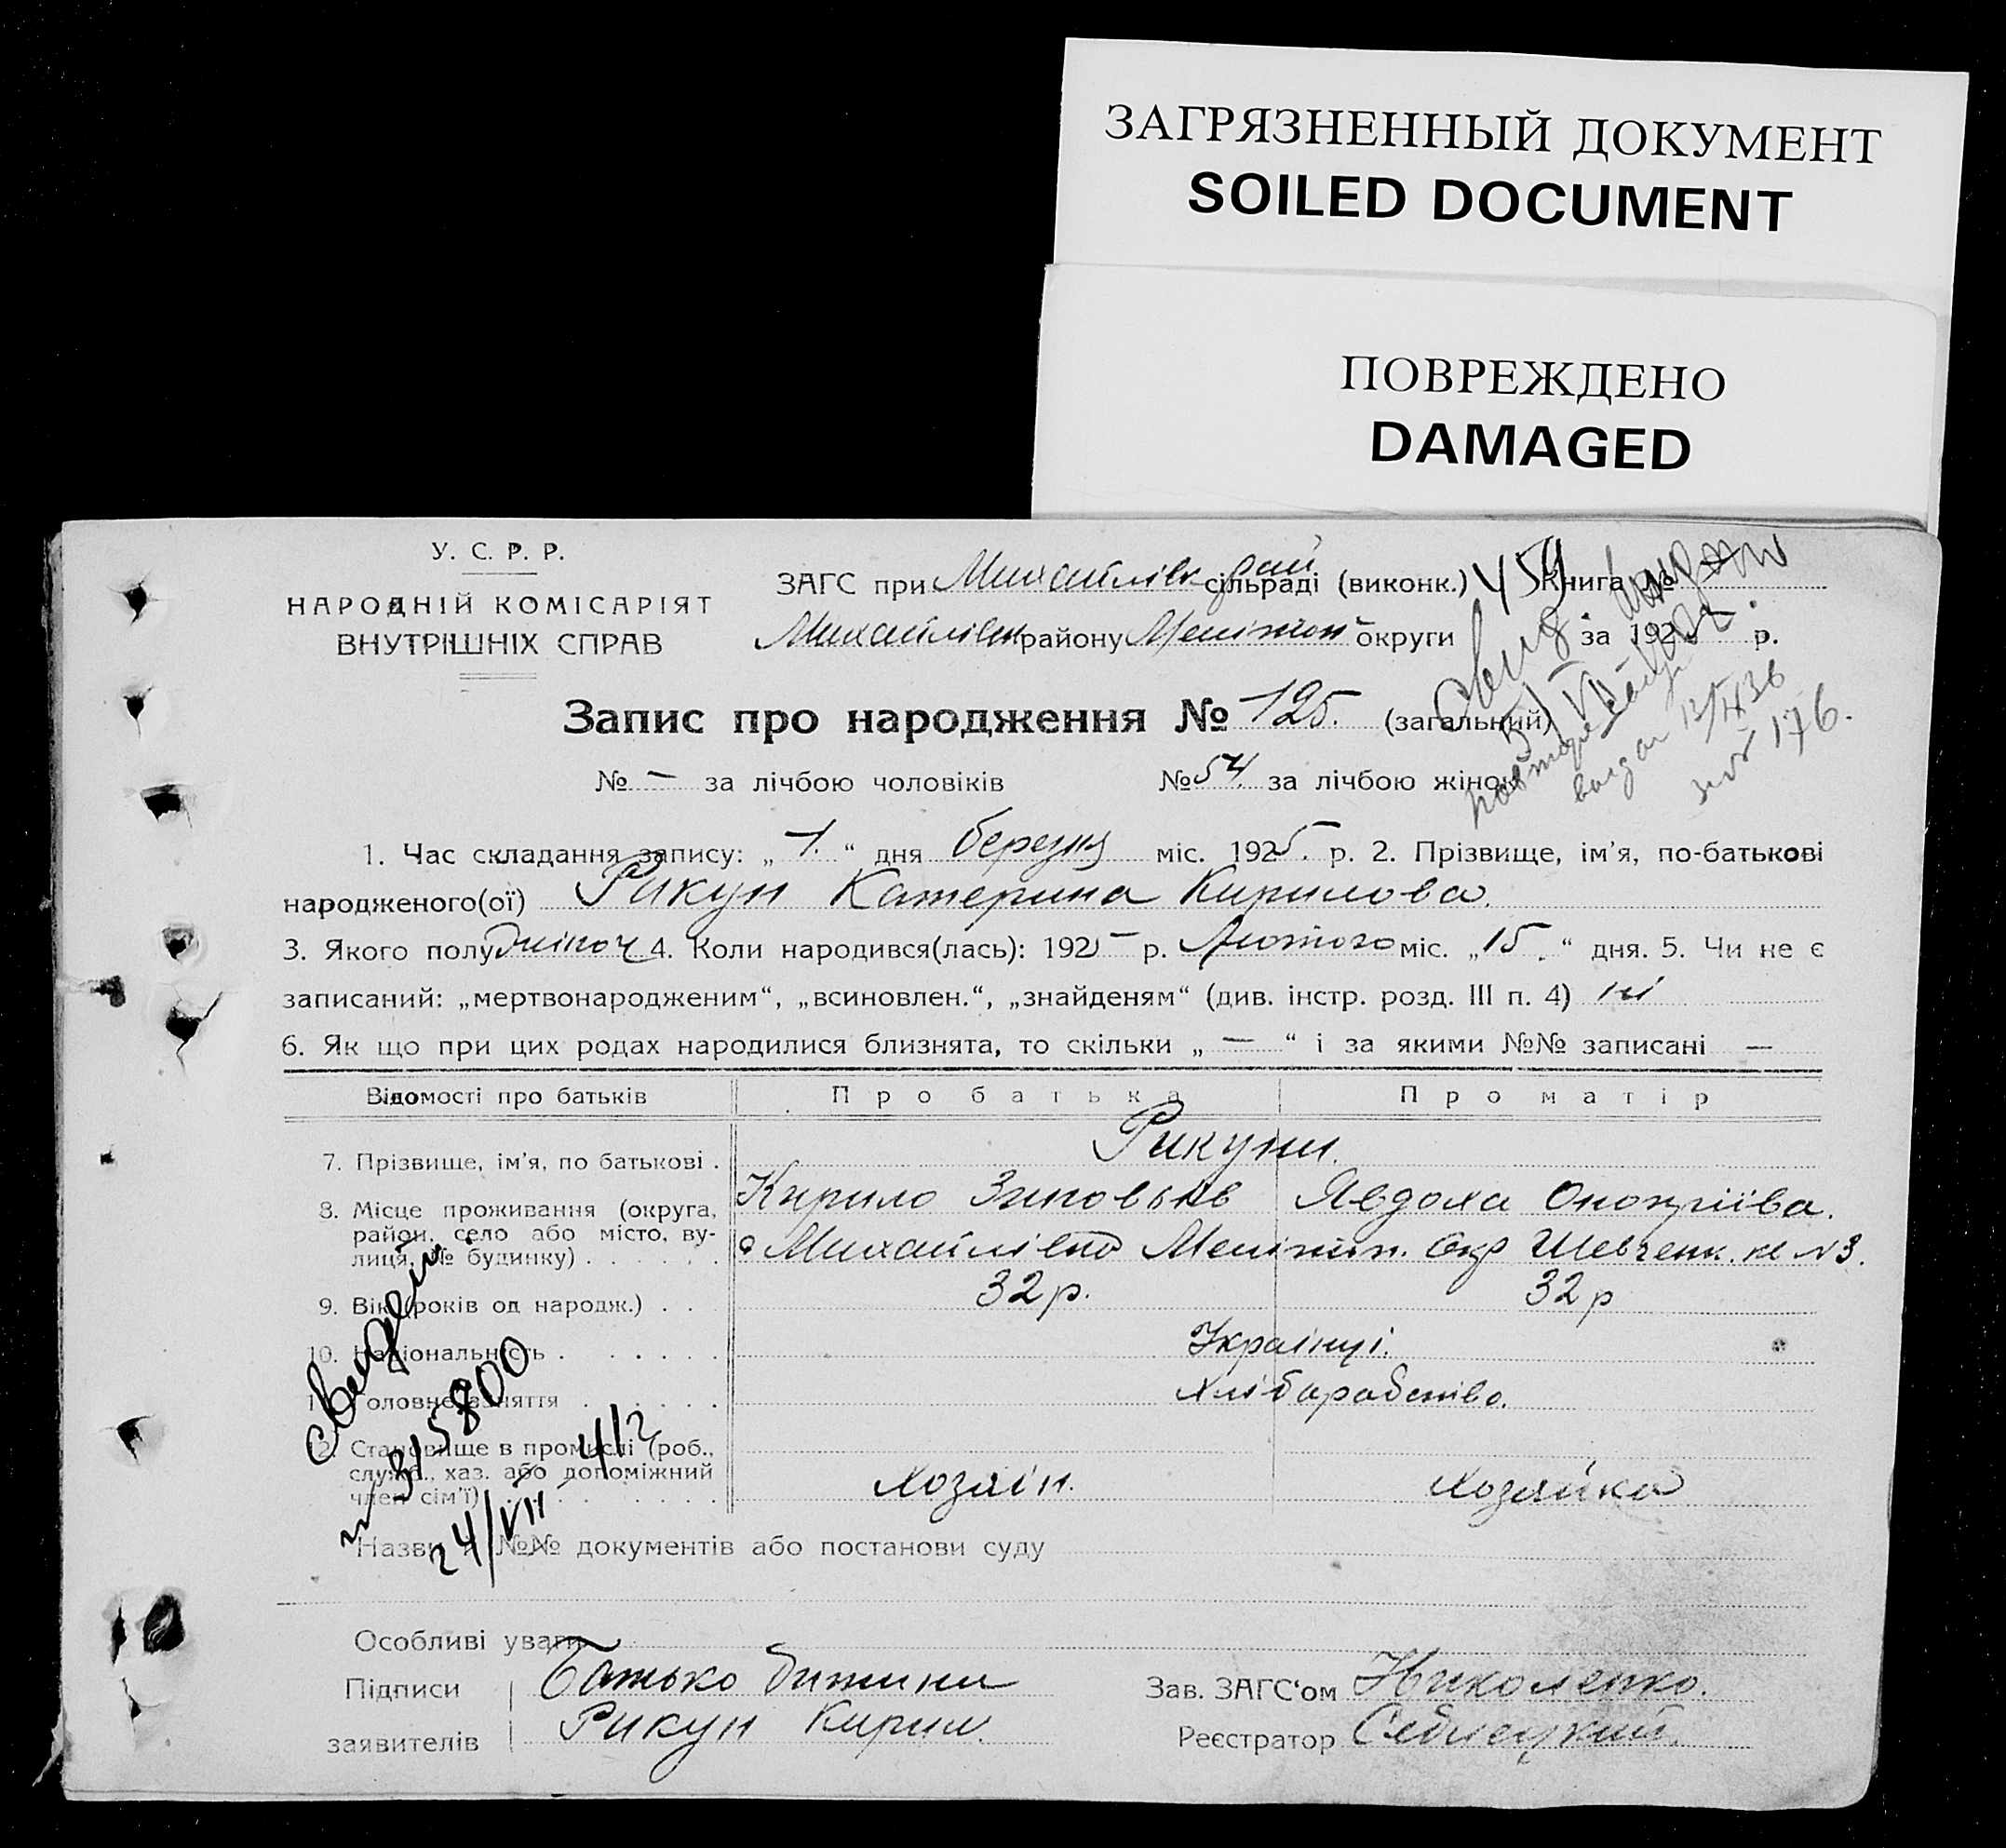 ЗАГРЯЗНЕННЫЙ ДОКУМЕНТ
SOILED DOCUMENT
ПОВРЕЖДЕНО
DAMAGED
У. С. Р. Р.
НАРОДНІЙ КОМІСАРІЯТ
ВНУТРІШНІХ СПРАВ
ЗАГС при Михайлівк рай сільраді (виконк.) 459 Книга №
Михайлівк району Мелітоп округи за 1925 р.
Запис про народження № 125. (загальний)
№ — за лічбою чоловіків № 54. за лічбою жінок
повторе
видан 12/X 36
№ 176.
1. Час складання запису: „ 1. “ дня березня міс. 1925. р. 2. Прізвище, ім'я, по-батькові
народженого(ої) Рикун Катерина Кирилова.
3. Якого полу Дівоч 4. Коли народився(лась): 1925 р. Лютого міс. „15.“ дня. 5. Чи не є
записаний: „мертвонародженим“, „всиновлен.“, „знайденям“ (див. інстр. розд. III п. 4) ні
6. Як що при цих родах народилися близнята, то скільки „ — “ і за якими №№ записані —
Відомості про батьків Про батька Про матір
7. Прізвище, ім'я, по батькові . Рикуни.
Кирило Зиновьів Явдоха Оноприіва.
8. Місце проживання (округа, район, село або місто, вулиця, № будинку) . . . . . .
с Михайлівка Мелітоп. Окр Шевченк. №3.
9. Вік (років од народж.) . . 32 р. 32 р
10. Національність . . . . . . Украінці.
11. Головне заняття . . . . . . Хліборобство.
12. Становище в промислі (роб., служб., хаз. або допоміжний член сім'ї) . . . . . . Хозяін. Хозяйка
Свидет
№ 315800
24/VII 412
Назви і №№ документів або постанови суду
Особливі уваги
Підписи Батько дитини Зав. ЗАГС'ом Николенко.
заявителів Рикун Кирил. Реєстратор